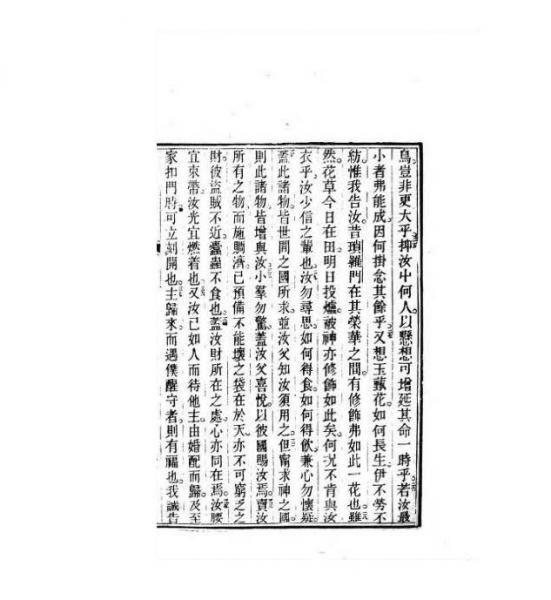 鳥豈非更大乎抑汝中何人以懸想可增延其命一時乎若汝最
小者弗能成因何掛念其餘乎又想玉蘂花如何長生伊不勞不
紡惟我告汝昔瑣羅門在其榮華之間有修飾弗如此一花也雖
然花草今日在田明日投爐被神亦修飾如此矣何況不肯與汝
衣乎汝少信之輩也汝勿尋思如何得食如何得飲兼心勿懷疑
蓋此諸物皆世間之國所求並汝父知汝須用之但寧求神之國
則此諸物皆增與汝小羣勿驚蓋汝父喜悅以彼國賜汝焉賣汝
所有之物而施賙濟已預備不能壞之袋在於天亦不可窮乏之
財彼盜賊不近蠹蟲不食也蓋汝財所在之處心亦同在焉汝腰
宜束帶汝光宜燃着也又汝已如人而待他主由婚配而歸及至
家扣門時可立刻開也主歸來而遇僕醒守者則有福也我誠告